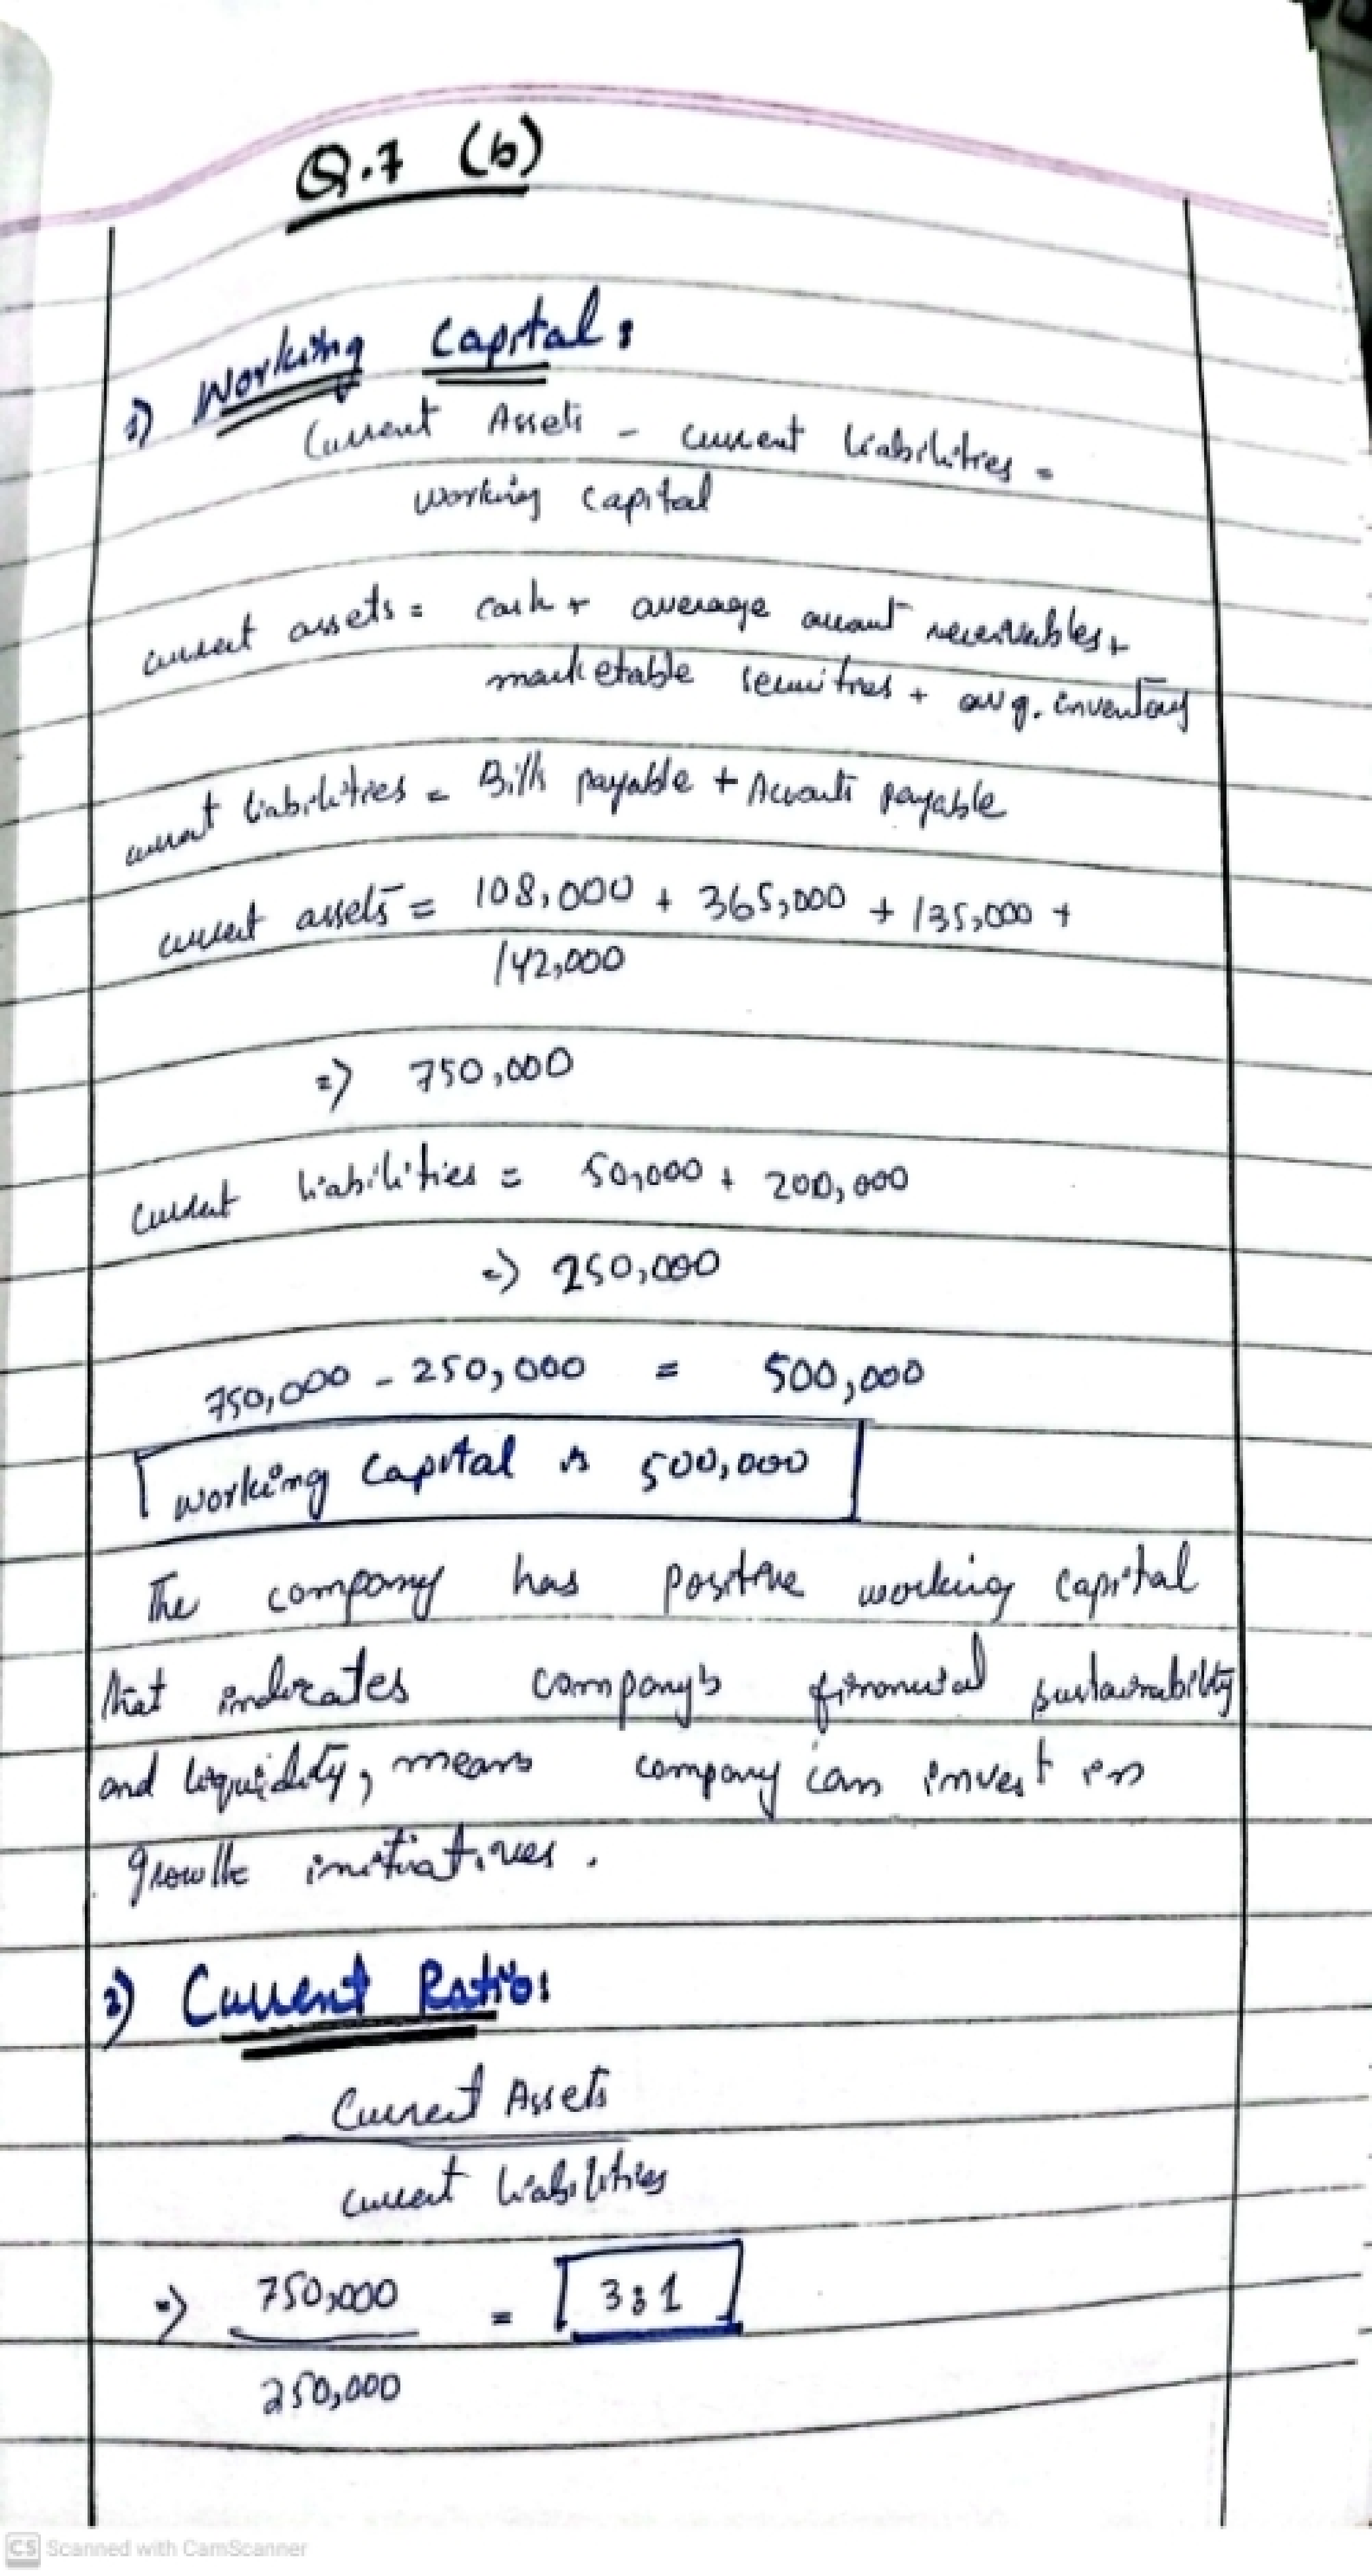 Q.7 (b)
1) Working Capital:
Current Assets - current liabilities =
working capital
current assets = cash + average account receivables +
marketable securities + avg. inventory
current liabilities = Bills payable + Accounts payable
current assets = 108,000 + 365,000 + 135,000 +
142,000
=> 750,000
current liabilities = 50,000 + 200,000
=> 250,000
750,000 - 250,000 = 500,000
working Capital is 500,000
The company has positive working capital
that indicates company's financial sustainability
and liquidity, means company can invest in
growth initiatives.
2) Current Ratio:
Current Assets
current liabilities
=> 750,000 = 3:1
250,000
CS Scanned with CamScanner